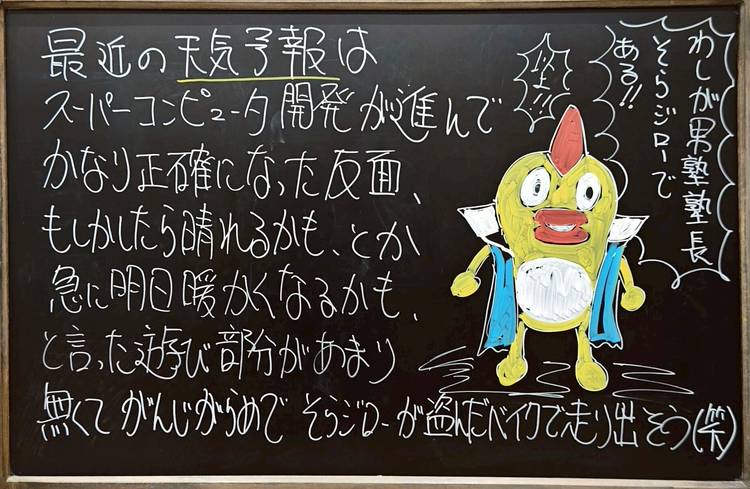 最近の天気予報は
スーパーコンピュータ開発が進んで
かなり正確になった反面、
もしかしたら晴れるかも、とか
急に明日暖かくなるかも、
と言った遊び部分があまり
無くてがんじがらめでそらジローが盗んだバイクで走り出そう(笑)
わしが男塾塾長
そらジローで
ある!!
以上!!